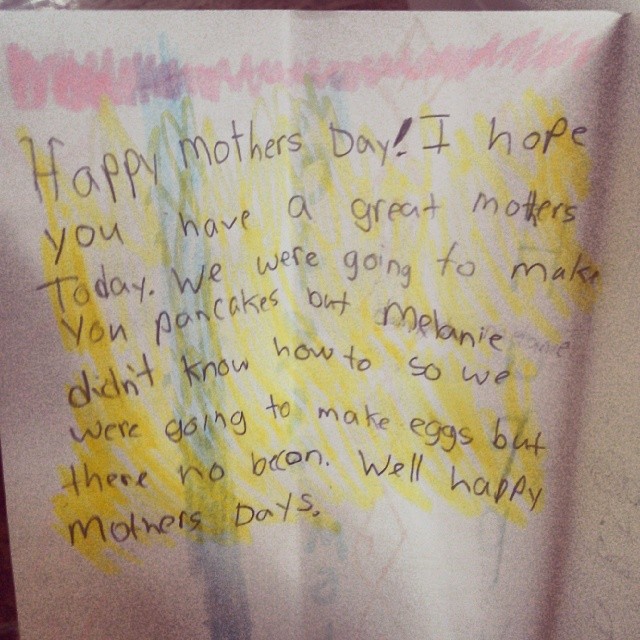 Happy Mothers Day! I hope
you have a great motters
Today. We were going to make
you pancakes but Melanie
didn't know how to so we
were going to make eggs but
there no becon. Well happy
Mothers Days.